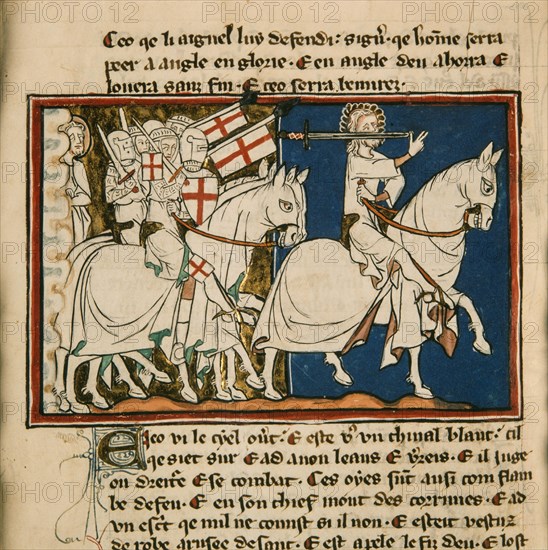 Ceo qe li aignel luy defendi: sigń. qe home serra
peer a angle en glorie. E en angle deu ahorra E
louera sanz fin. E ceo serra
Eeco vi le cyel ou't. E este vꝰ vn chiual blanc. cil
qe siet sur E ad a non leaus E vereis. E il iuge
on dreite E se combat. Ces oyes sūt ausi com flam
be de feu. E en son chief mont des corrones. E ad
vn escrit qe nul ne conust si il non. E esteit vestuz
de robe arusee de sanc. E est apele le fiz deu. E lost